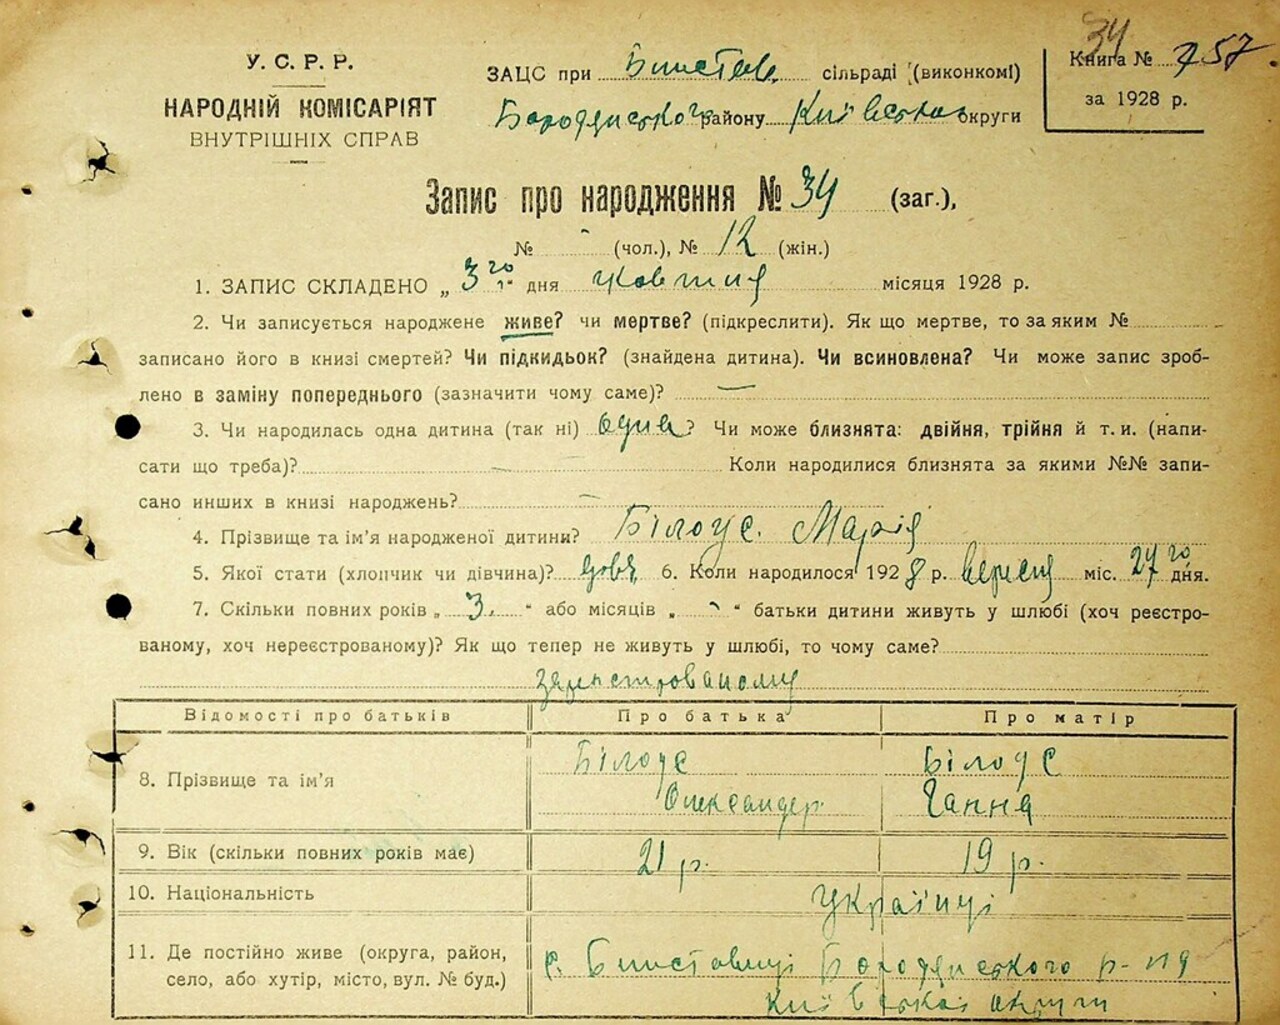 У. С. Р. Р.
НАРОДНІЙ КОМІСАРІЯТ
ВНУТРІШНІХ СПРАВ
34
ЗАЦС при сільраді (виконкомі)
Бородянського району Київської округи
Книга № 57
за 1928 р.
Запис про народження № 34 (заг.),
№ - (чол.), № 12 (жін.)
1. ЗАПИС СКЛАДЕНО „ 3го " дня жовтня місяця 1928 р.
2. Чи записується народжене живе? чи мертве? (підкреслити). Як що мертве, то за яким №
записано його в книзі смертей? Чи підкидьок? (знайдена дитина). Чи всиновлена? Чи може запис зроб-
лено в заміну попереднього (зазначити чому саме)? —
3. Чи народилась одна дитина (так ні) одна? Чи може близнята: двійня, трійня й т. и. (напи-
сати що треба)? Коли народилися близнята за якими №№ запи-
сано инших в книзі народжень?
4. Прізвище та ім'я народженої дитини? Білоус Марія
5. Якої стати (хлопчик чи дівчина)? 6. Коли народилося 1928 р. вересня міс. 27го дня.
7. Скільки повних років „ 3 " або місяців „ - " батьки дитини живуть у шлюбі (хоч реєстро-
ваному, хоч нереєстрованому)? Як що тепер не живуть у шлюбі, то чому саме?
Відомості про батьків Про батька Про матір
8. Прізвище та ім'я Білоус Олександер Білоус Ганна
9. Вік (скільки повних років має) 21 р. 19 р.
10. Національність Українці
11. Де постійно живе (округа, район,
село, або хутір, місто, вул. № буд.) с. Бородянського р-на
Київської округи